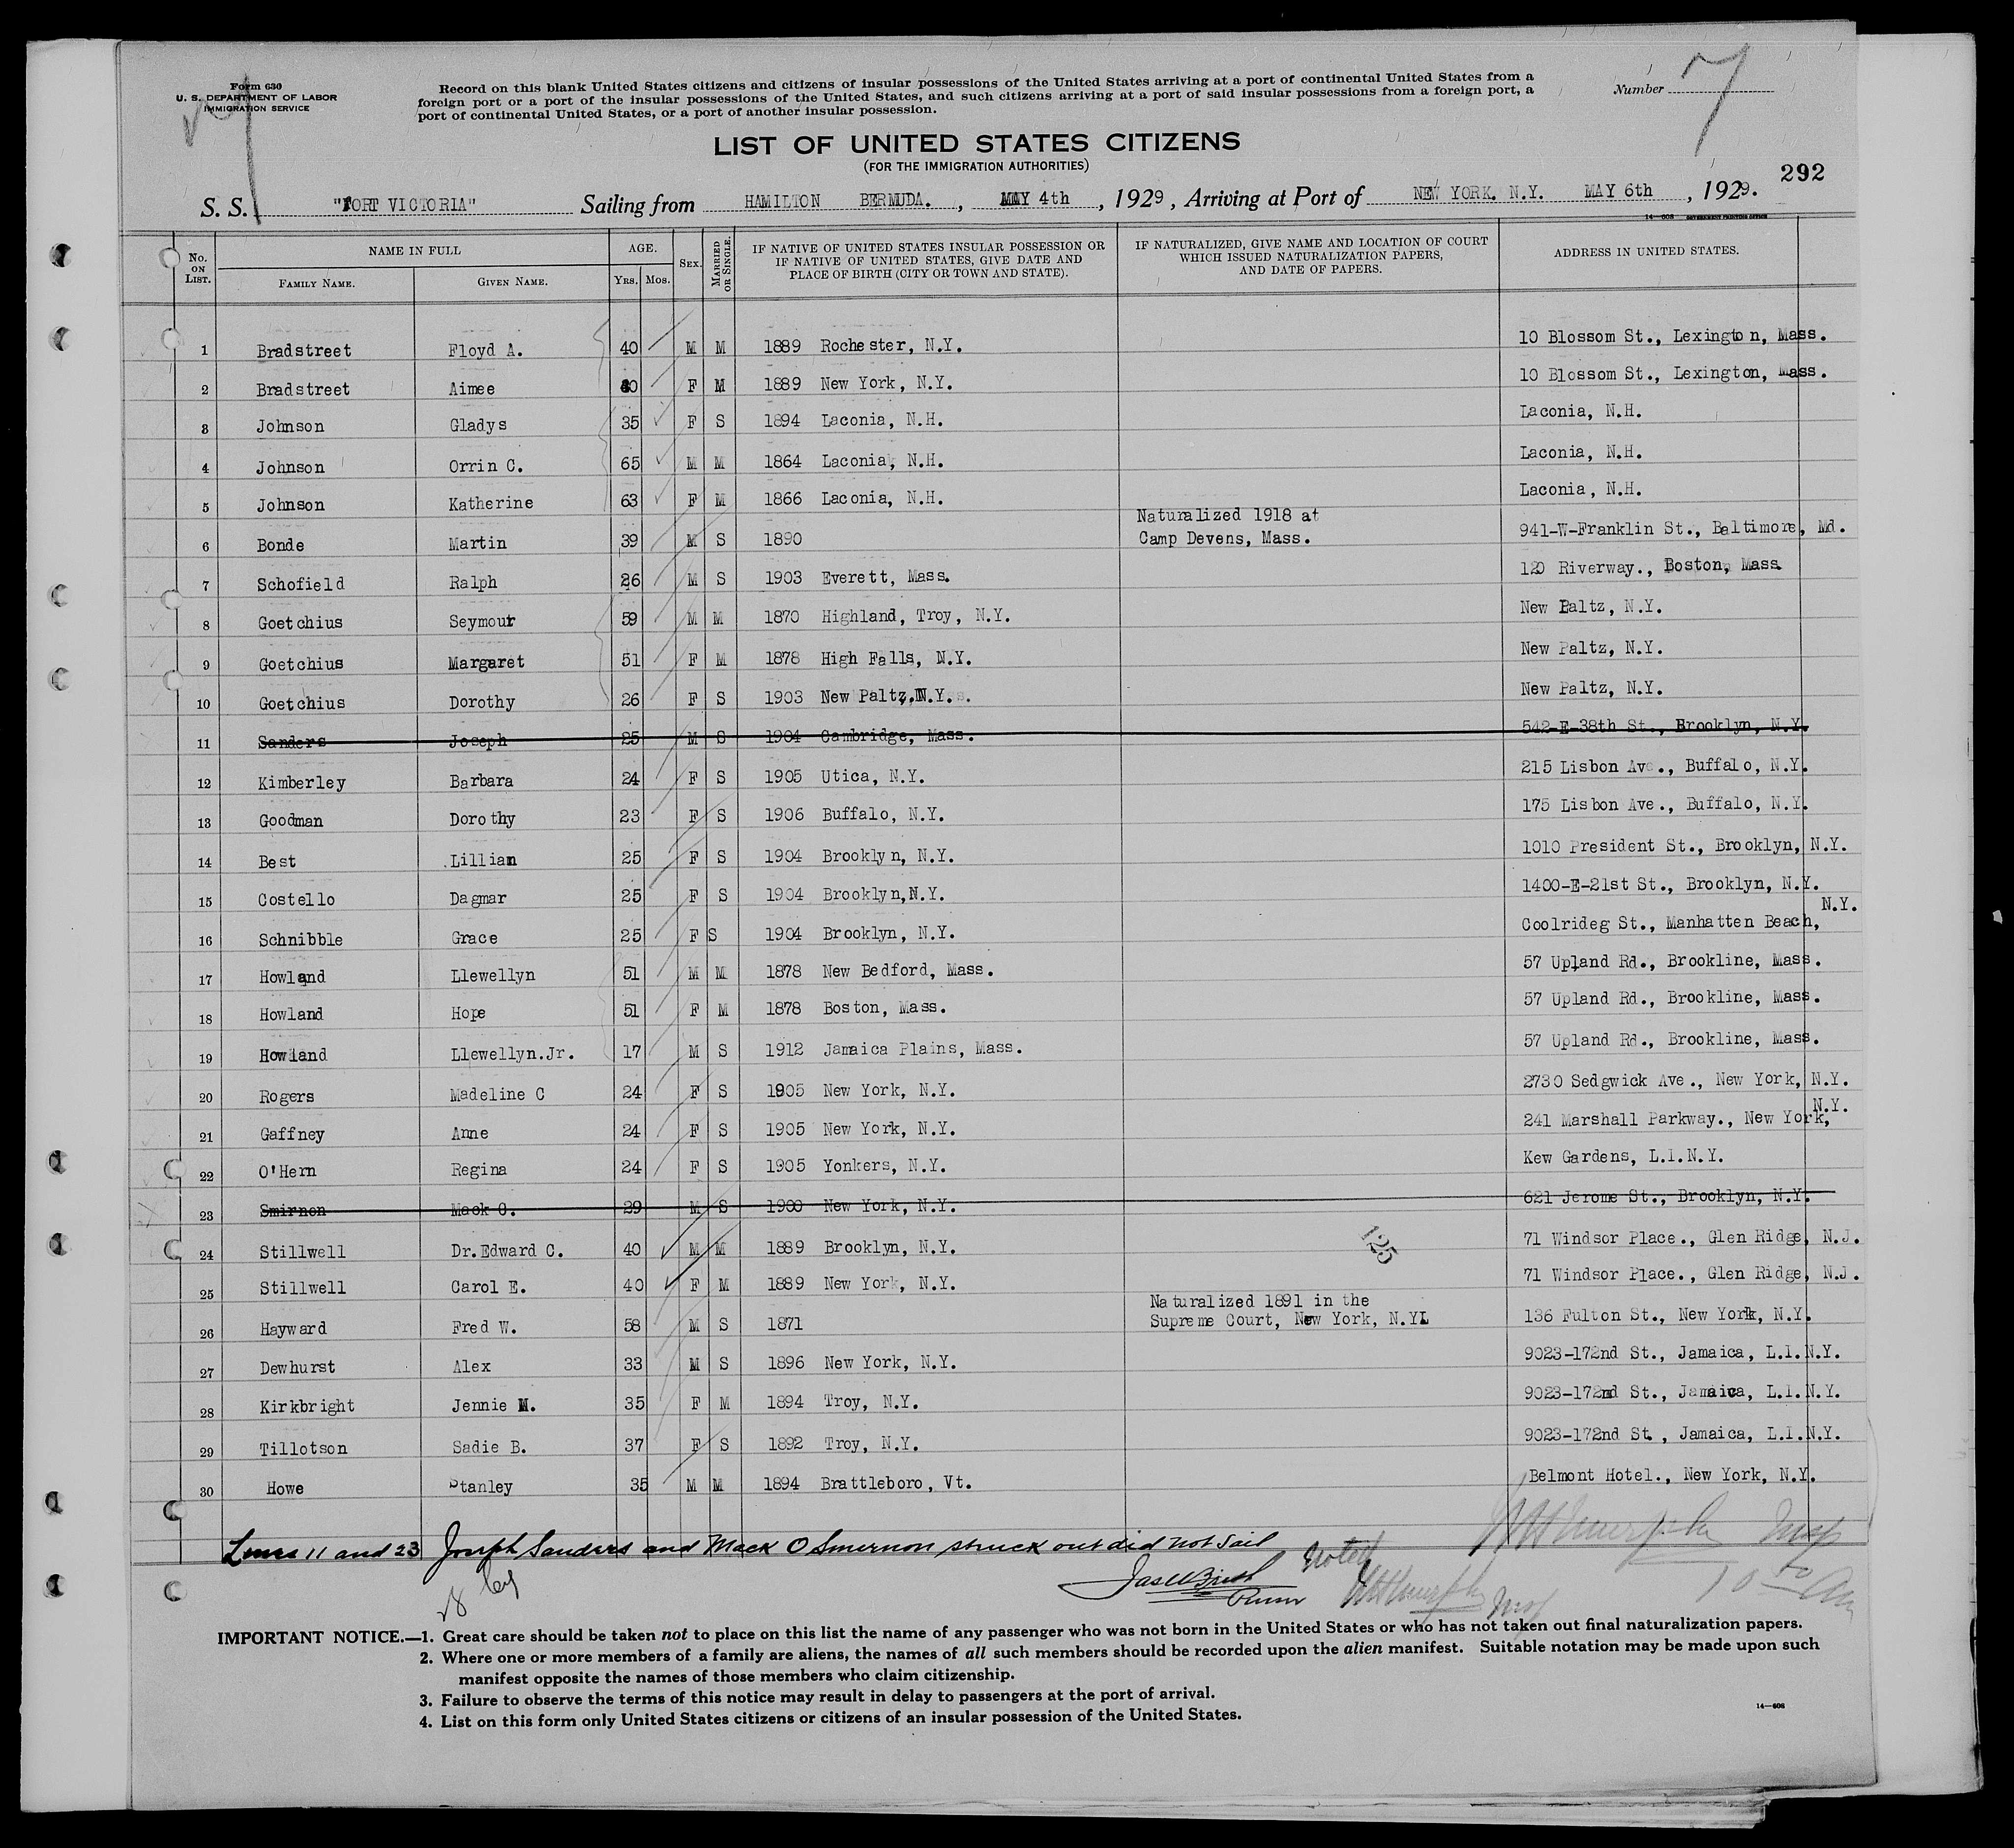 Form 630
U. S. DEPARTMENT OF LABOR
IMMIGRATION SERVICE
Record on this blank United States citizens and citizens of insular possessions of the United States arriving at a port of continental United States from a
foreign port or a port of the insular possessions of the United States, and such citizens arriving at a port of said insular possessions from a foreign port, a
port of continental United States, or a port of another insular possession.
Number 7
LIST OF UNITED STATES CITIZENS
(FOR THE IMMIGRATION AUTHORITIES)
292
S. S. "FORT VICTORIA" Sailing from HAMILTON BERMUDA. , MAY 4th , 1929 , Arriving at Port of NEW YORK. N.Y. MAY 6th , 1929.
14—608 GOVERNMENT PRINTING OFFICE
No. ON LIST. NAME IN FULL FAMILY NAME. GIVEN NAME. AGE. YRS. MOS. SEX. MARRIED OR SINGLE. IF NATIVE OF UNITED STATES INSULAR POSSESSION OR IF NATIVE OF UNITED STATES, GIVE DATE AND PLACE OF BIRTH (CITY OR TOWN AND STATE). IF NATURALIZED, GIVE NAME AND LOCATION OF COURT WHICH ISSUED NATURALIZATION PAPERS, AND DATE OF PAPERS. ADDRESS IN UNITED STATES.
1 Bradstreet Floyd A. 40 M M 1889 Rochester, N.Y. 10 Blossom St., Lexington, Mass.
2 Bradstreet Aimee 40 F M 1889 New York, N.Y. 10 Blossom St., Lexington, Mass.
3 Johnson Gladys 35 F S 1894 Laconia, N.H. Laconia, N.H.
4 Johnson Orrin C. 65 M M 1864 Laconia, N.H. Laconia, N.H.
5 Johnson Katherine 63 F M 1866 Laconia, N.H. Laconia, N.H.
6 Bonde Martin 39 M S 1890 Naturalized 1918 at Camp Devens, Mass. 941-W-Franklin St., Baltimore, Md.
7 Schofield Ralph 26 M S 1903 Everett, Mass. 120 Riverway., Boston, Mass
8 Goetchius Seymour 59 M M 1870 Highland, Troy, N.Y. New Paltz, N.Y.
9 Goetchius Margaret 51 F M 1878 High Falls, N.Y. New Paltz, N.Y.
10 Goetchius Dorothy 26 F S 1903 New Paltz,N.Y. New Paltz, N.Y.
11 Sanders Joseph 25 M S 1904 Cambridge, Mass. 542-E-38th St., Brooklyn, N.Y.
12 Kimberley Barbara 24 F S 1905 Utica, N.Y. 215 Lisbon Ave., Buffalo, N.Y.
13 Goodman Dorothy 23 F S 1906 Buffalo, N.Y. 175 Lisbon Ave., Buffalo, N.Y.
14 Best Lillian 25 F S 1904 Brooklyn, N.Y. 1010 President St., Brooklyn, N.Y.
15 Costello Dagmar 25 F S 1904 Brooklyn,N.Y. 1400-E-21st St., Brooklyn, N.Y.
16 Schnibble Grace 25 F S 1904 Brooklyn, N.Y. Coolrideg St., Manhatten Beach, N.Y.
17 Howland Llewellyn 51 M M 1878 New Bedford, Mass. 57 Upland Rd., Brookline, Mass.
18 Howland Hope 51 F M 1878 Boston, Mass. 57 Upland Rd., Brookline, Mass.
19 Howland Llewellyn.Jr. 17 M S 1912 Jamaica Plains, Mass. 57 Upland Rd., Brookline, Mass.
20 Rogers Madeline C 24 F S 1905 New York, N.Y. 2730 Sedgwick Ave., New York, N.Y.
21 Gaffney Anne 24 F S 1905 New York, N.Y. 241 Marshall Parkway., New York, N.Y.
22 O'Hern Regina 24 F S 1905 Yonkers, N.Y. Kew Gardens, L.I.N.Y.
23 Smirnon Mack O. 29 M S 1900 New York, N.Y. 621 Jerome St., Brooklyn, N.Y.
24 Stillwell Dr.Edward C. 40 M M 1889 Brooklyn, N.Y. 71 Windsor Place., Glen Ridge, N.J.
125
25 Stillwell Carol E. 40 F M 1889 New York, N.Y. 71 Windsor Place., Glen Ridge, N.J.
26 Hayward Fred W. 58 M S 1871 Naturalized 1891 in the Supreme Court, New York, N.Y. 136 Fulton St., New York, N.Y.
27 Dewhurst Alex 33 M S 1896 New York, N.Y. 9023-172nd St., Jamaica, L.I.N.Y.
28 Kirkbright Jennie M. 35 F M 1894 Troy, N.Y. 9023-172nd St., Jamaica, L.I.N.Y.
29 Tillotson Sadie B. 37 F S 1892 Troy, N.Y. 9023-172nd St., Jamaica, L.I.N.Y.
30 Howe Stanley 35 M M 1894 Brattleboro, Vt. Belmont Hotel., New York, N.Y.
Lines 11 and 23 Joseph Sanders and Mack O Smernon struck out did not sail
Noted
IMPORTANT NOTICE.—1. Great care should be taken not to place on this list the name of any passenger who was not born in the United States or who has not taken out final naturalization papers.
2. Where one or more members of a family are aliens, the names of all such members should be recorded upon the alien manifest. Suitable notation may be made upon such
manifest opposite the names of those members who claim citizenship.
3. Failure to observe the terms of this notice may result in delay to passengers at the port of arrival.
4. List on this form only United States citizens or citizens of an insular possession of the United States.
14—608